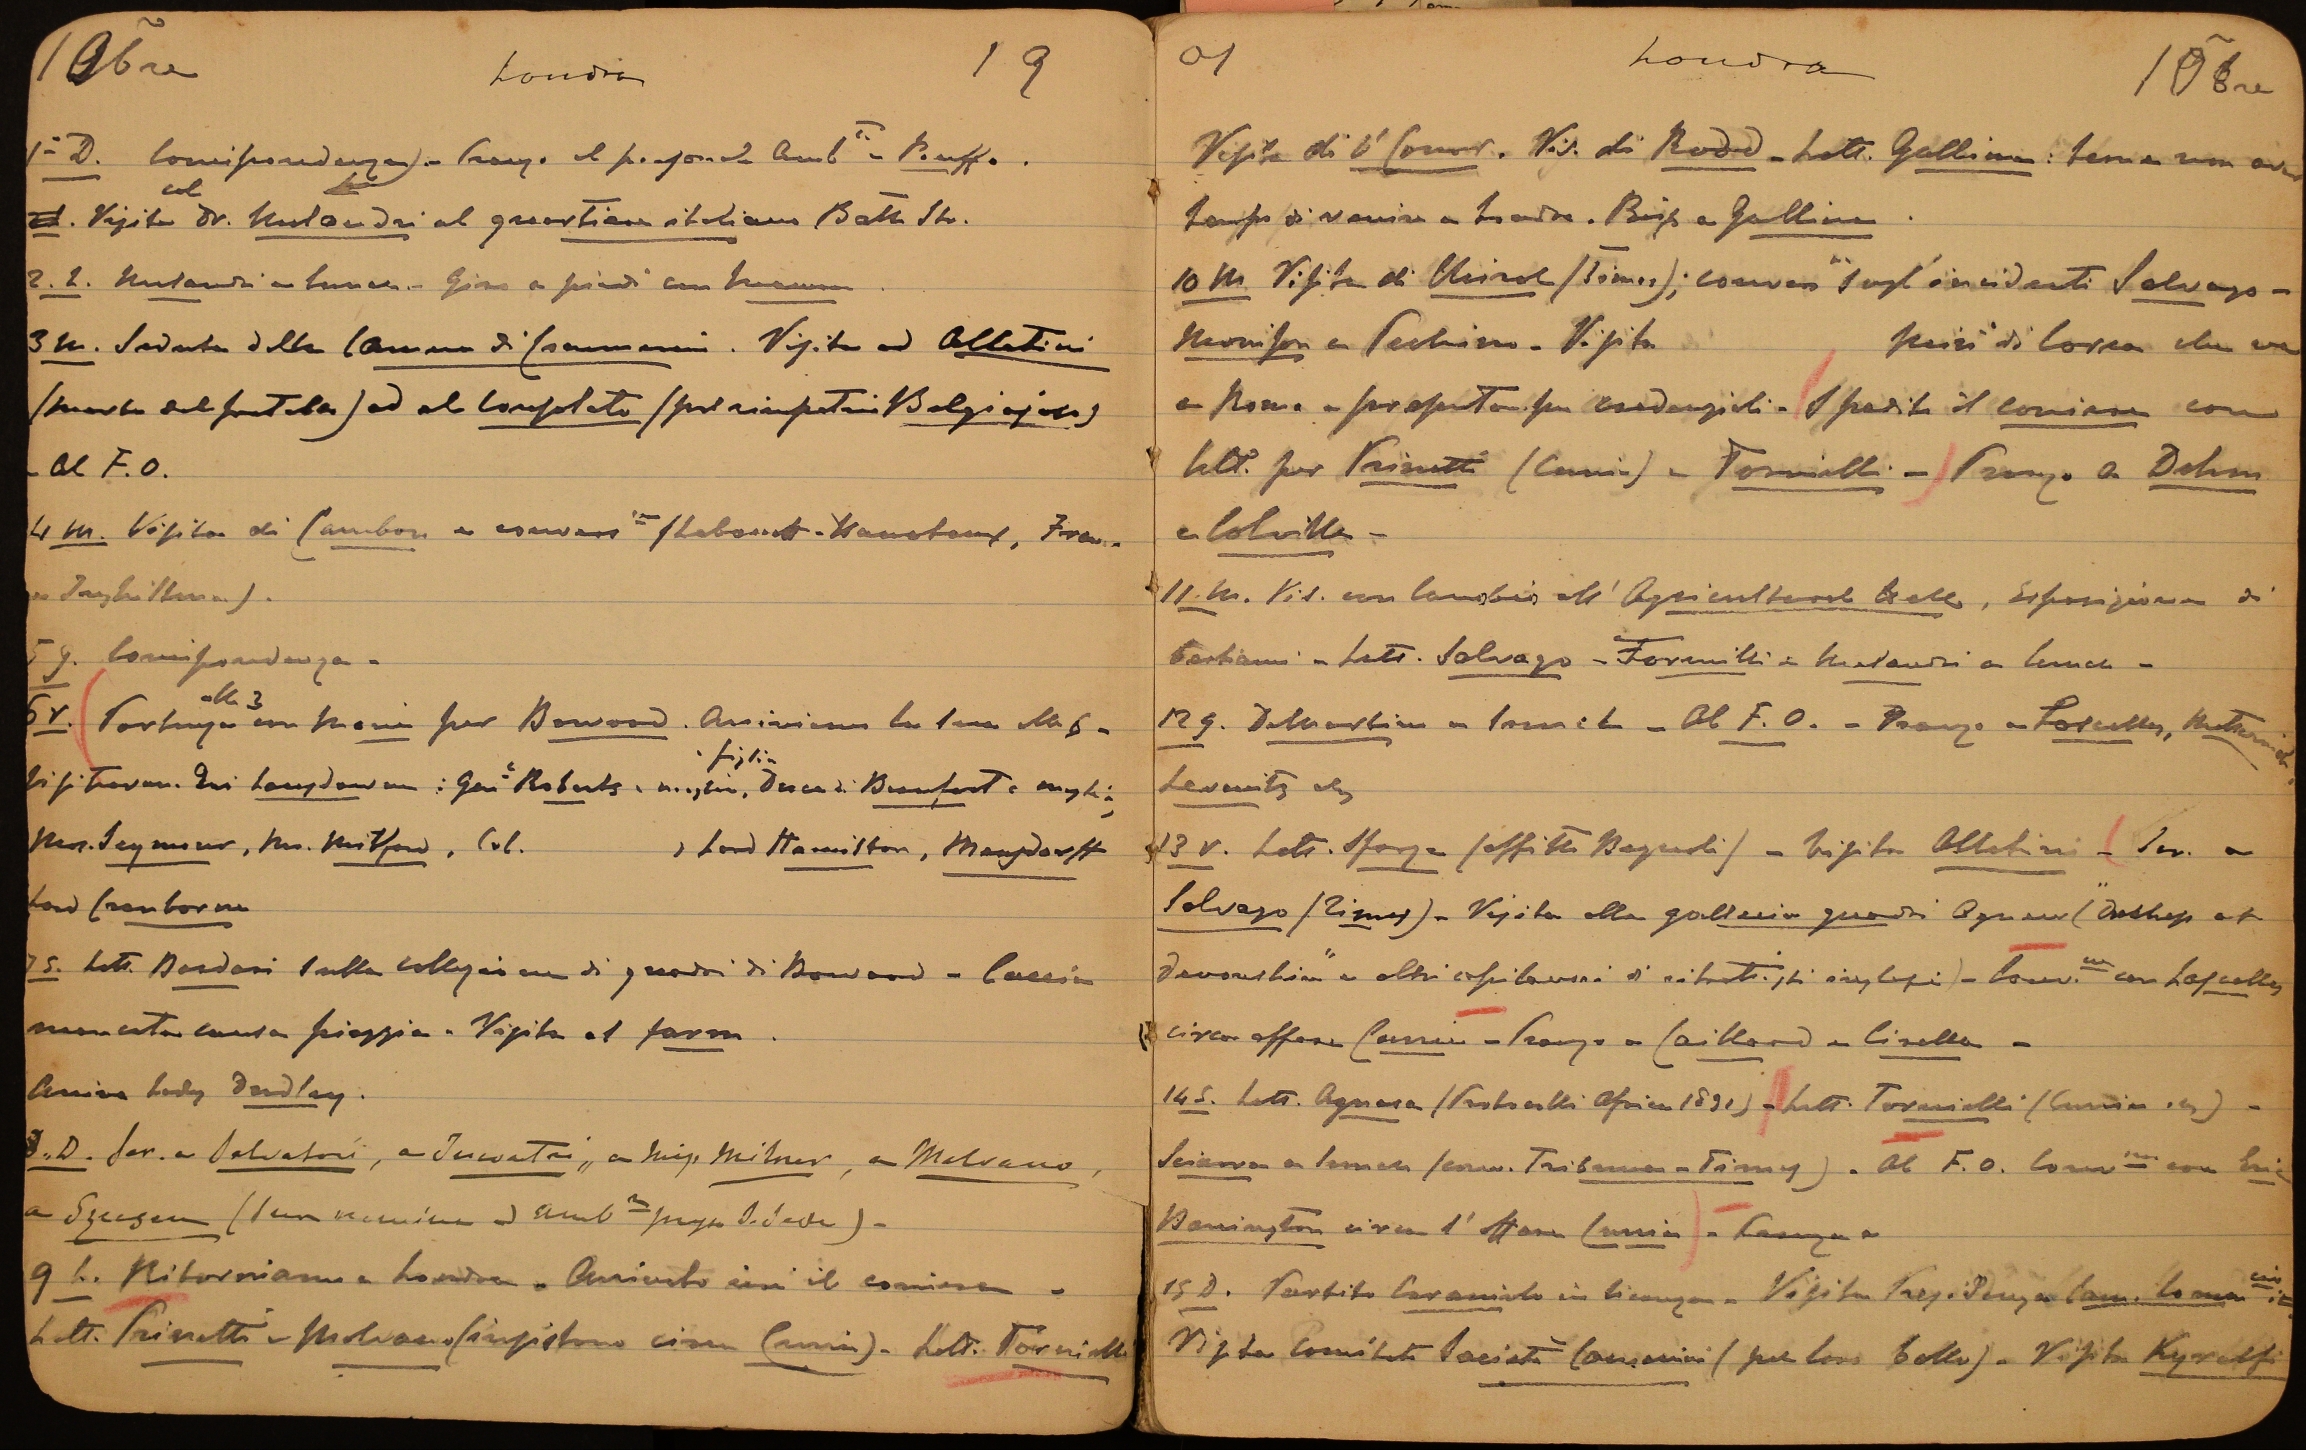 10bre Londra 19
1 D. Corrispondenza - Pranzo al personale Amb - Ruffo.
Visita col dr. Melandri al quartiere italiano Bath Str.
2. L. Melandri a lunch - Giro a piedi con
3 M. Seduta della Camera di Commercio. Visita ad Allatini
(morte del fratello) ed al Consolato (pel rimpatrio Belgiojoso)
- Al F.O.
4 M. Visita di Cambon e convers (Labouch - Hanotaux, Fran-
Inghilterra).
5 g. Corrispondenza -
6 V. Partenza alle 3 con Maria per Bowood. Arriviamo la sera alle 6 -
Lansdowne : Gen Roberts e moglie, figlia, Duca di Beaufort e moglie,
Mrs. Seymour, Mr. Mitford, Col. , Lord Hamilton, Mensdorff
Lord Cranborne
7 S. Lett. Bordari sulla collezione di quadri di Bowood - Caccia
mancata causa pioggia - Visita al farm.
Arriva Lady Dudley.
8. D. Scr. a Salvatori, a a Miss Milner, a Malvano,
a Szecsen (sua nomina ad Amb presso S. Sede) -
9 L. Ritorniamo a Londra - Arrivato ieri il corriere -
Lett. Prinetti e Malvano (insistono circa Cunia) - Lett. Tornielli
01 Londra 10bre
Visita di O'Conor. Vis. di Rodd - Lett. Gallina: teme non aver
tempo di venire a Londra. Risp. a Gallina.
10 M Visita di Chirol (Times); convers sugl'incidenti Salvago -
Morrison a Pechino - Visita di Corea che va
a Roma a presentare sue credenziali - Spedito il corriere con
lett. per Prinetti (Cunia) - Tornielli - Pranzo a
e Colville -
11. M. Vis. con all'Agricultural Hall, Esposizione di
bestiame - Lett. Salvago - Tornielli e Melandri a lunch -
12 g. DeMartino a lunch - Al F.O. - Pranzo a Lascelles, Metternich,

13 V. Lett. Sforza (affitti Bagnoli) - Visita Allatini - Scr. a
Salvago (Times) - Visita alla galleria quadri Agnew ("Duchess of
Devonshire" e altri capilavori di ritrattisti inglesi) - Conv. con Lascelles
circa affare Cunia - Pranzo a Caillard e Cirella -
14 S. Lett. Agnesa (Protocolli Africa 1891) - Lett. Tornielli (Cunia) -
Sciarra a lunch (conv. Tribuna - Times) - Al F.O. Conv con Eric
Barrington circa l'affare Cunia) - Pranzo a
15 D. Partito Carignani in licenza - Visita Presidenza Cam. Comm
Visita Comitato Società (pel loro ballo) - Visita